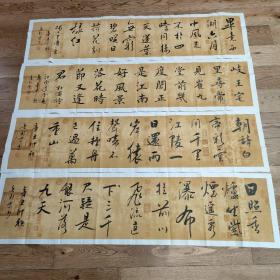 畢竟西
湖六月
中風光
不於四
時同接
天蓮葉
無窮
碧映日
樣紅
岐王宅
里尋常
見崔九
堂前幾
度聞正
是江南
好風景
落花時
節又逢
君
朝辭白
帝彩雲
間千里
江陵一
日還兩
岸猿
聲啼不
住輕舟
已過萬
重山
日照香
爐生紫
煙遙看
瀑布
掛前川
飛流直
下三千
尺疑是
銀河落
九天